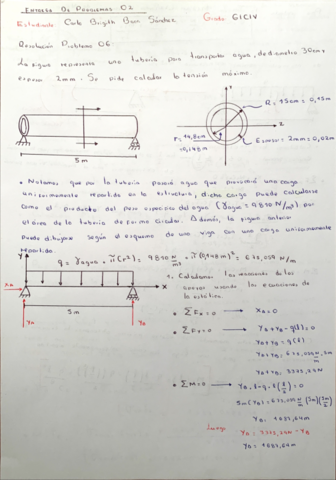 Entrega De Problemas 02
Estudiante Carlo Brigith Baon Sánchez. Grado GICIV
Resolución Problema 06:
La figura representa una tubería para transportar agua, de diámetro 30cm y
espesor 2mm. Se pide calcular la tensión máxima.
Y
R = 15cm = 0,15m
Z
r = 14,8cm
= 0,148m
Espesor = 2mm = 0,02m
5m
• Notamos que por la tubería pasará agua que provocará una carga
uniformemente repartida en la estructura, dicha carga puede calcularse
como el producto del peso específico del agua (γagua = 9810 N/m³) por
el área de la tubería de forma circular. Además, la figura anterior
puede dibujarse según el esquema de una viga con una carga uniformemente
repartida.
q = γagua · π(r²) = 9810 N/m³ · π(0,148m)² = 675,059 N/m
Y
X
XA
5m
YA
YB
1. Calculamos las reacciones de los
usando las ecuaciones de
la estática.
• ΣFx = 0 → XA = 0
• ΣFy = 0 → YA + YB - q(l) = 0
YA + YB = q(l)
YA + YB:
YA + YB:
• Σm = 0 → YB · l - q · l (l/2) = 0
5m (YB) =
YB: 1687,64m
Luego
YA:
YA = 1687,64m